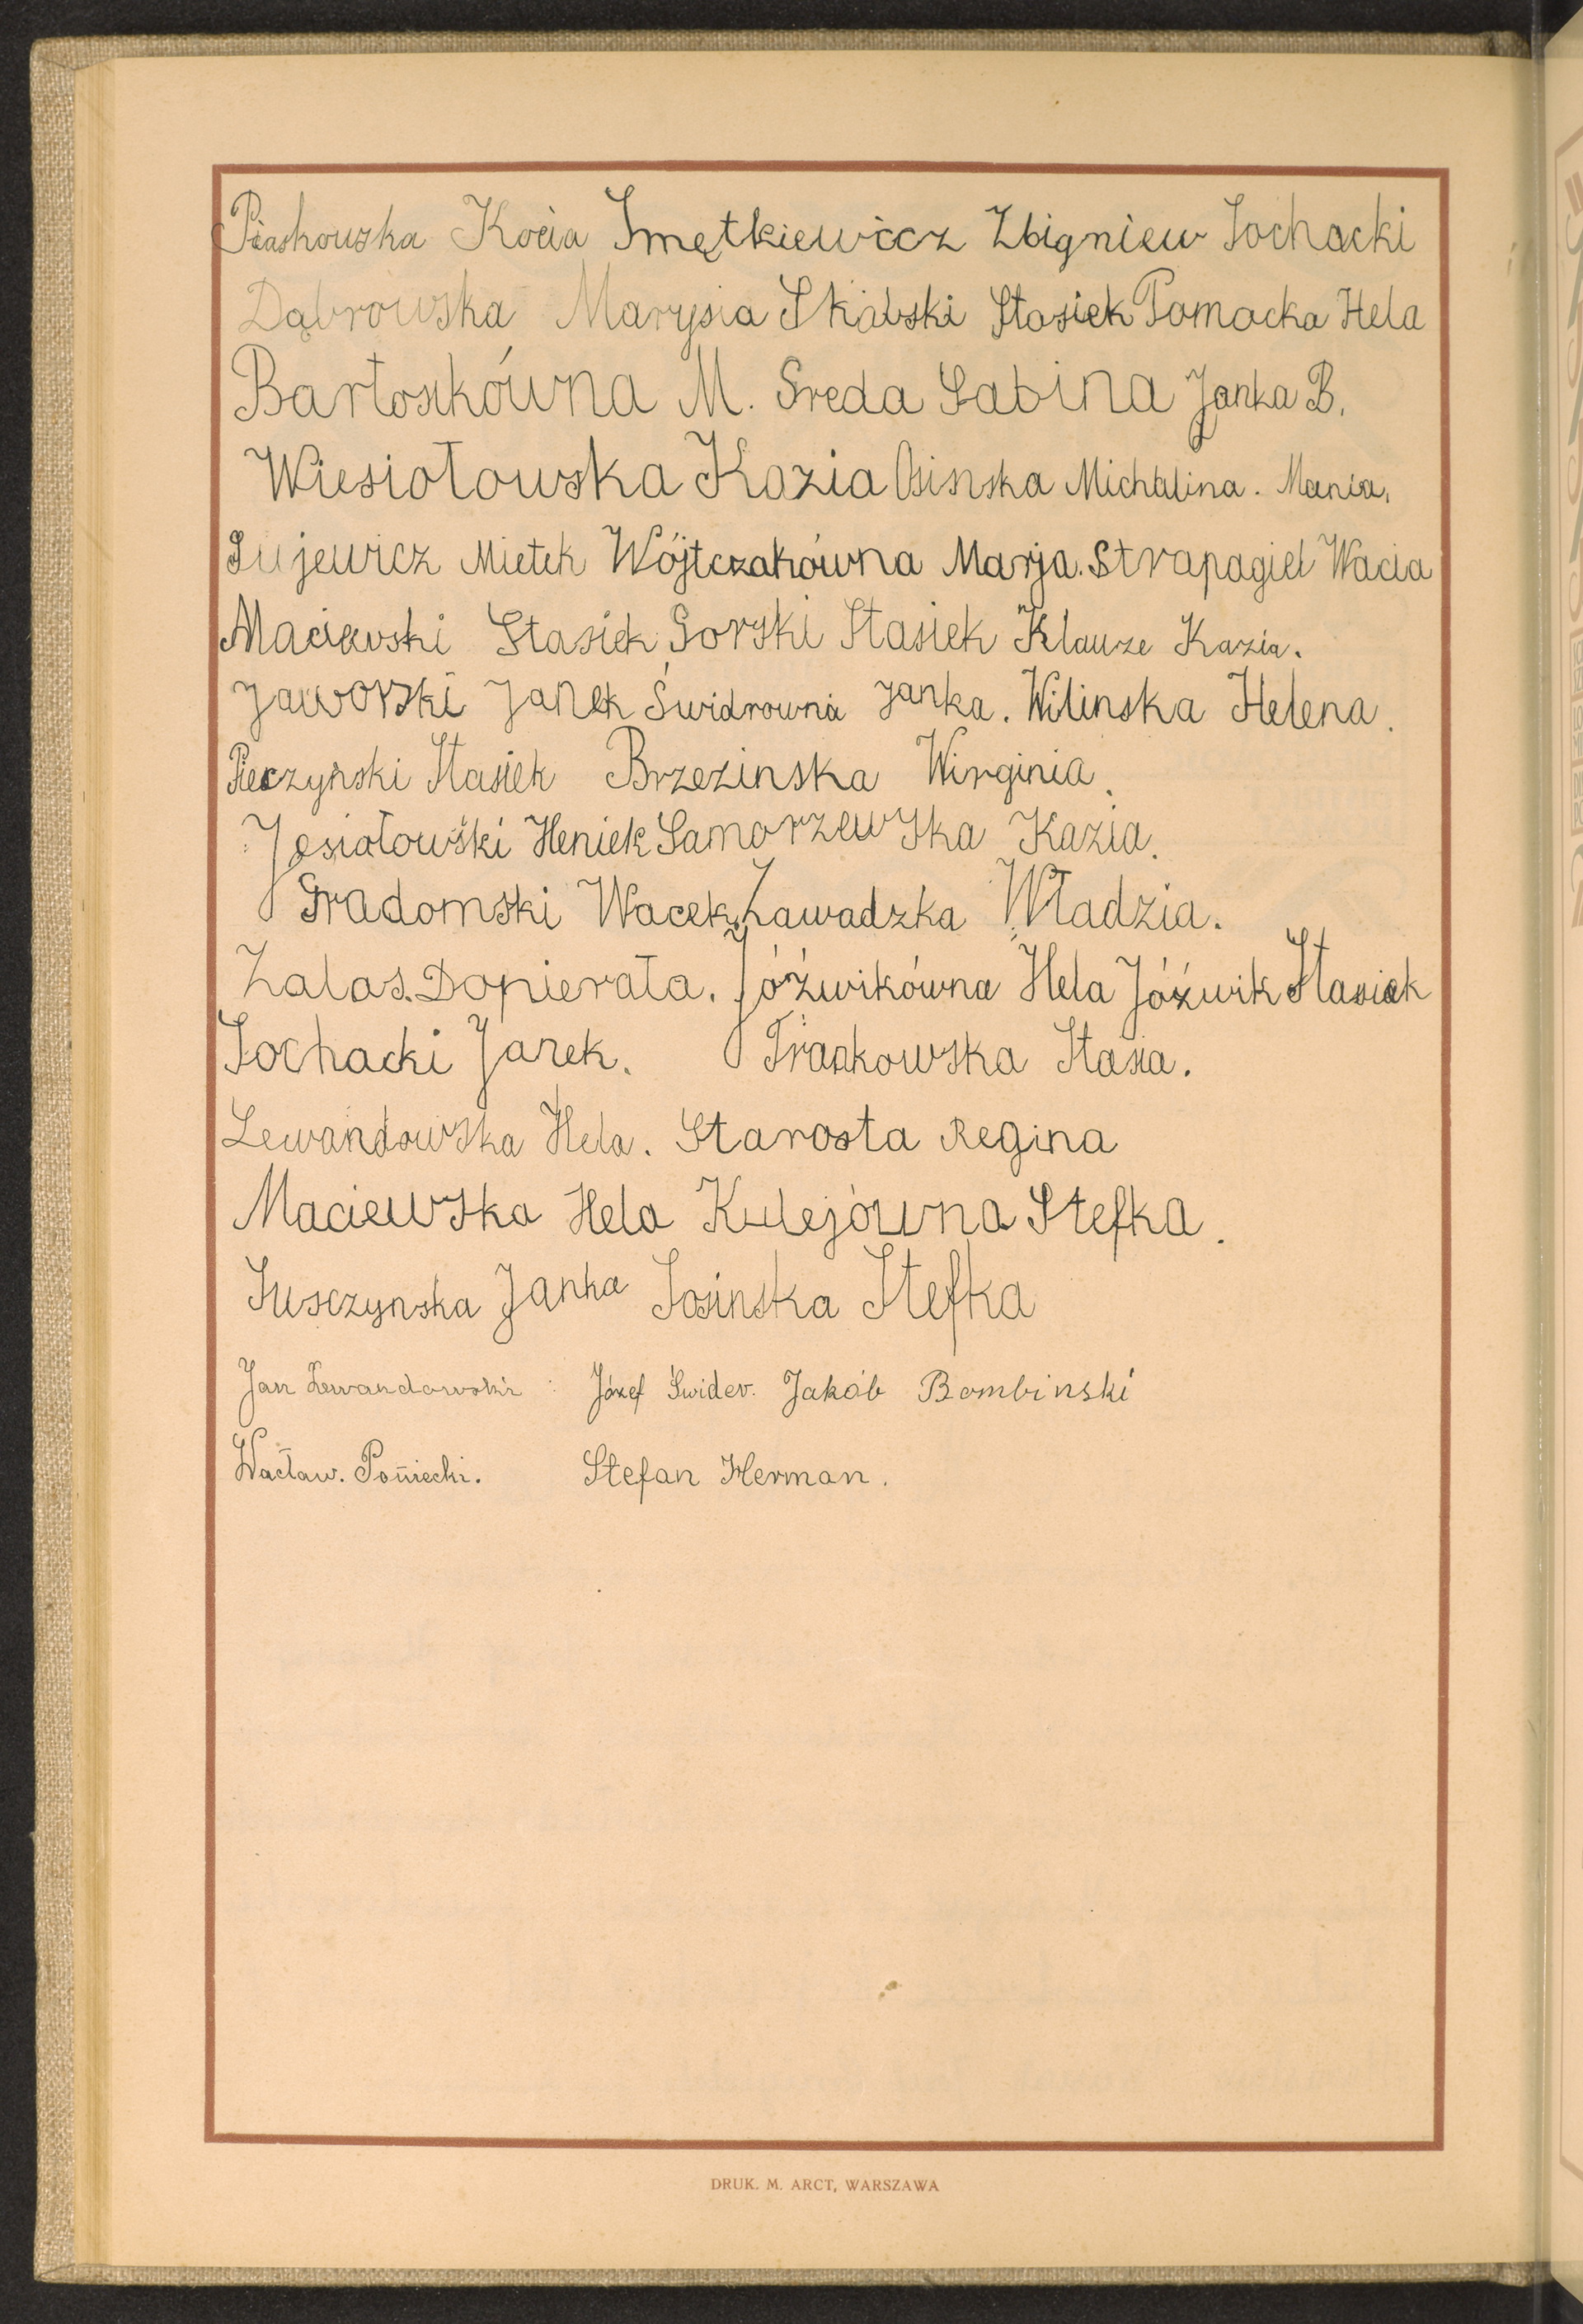 Piaskowska Kocia Smętkiewicz Zbigniew Sochacki
Dąbrowska Marysia Skabski Stasiek Pomocka Hela
Bartosikówna M. Sreda Sabina Janka B.
Wiesiołowska Kazia Osinska Michalina. Mania.
Gujewicz Mietek Wójtczakówna Marja. Strapagiel Wacia
Maciewski Stasiek Gorski Stasiek Klauze Kazia.
Jaworski Janek Świdrowna Janka. Wilinska Helena.
Pieczyński Stasiek Brzezinska Wirginia.
Jesiołowski Heniek Samorzewska Kazia.
Gradomski Wacek Zawadzka Władzia.
Zalas. Dopierała. Jóźwikówna Hela Jóźwik Stasiek
Sochacki Janek. Frankowska Stasia.
Lewandowska Hela. Starosta Regina
Maciewska Hela Kulejówna Stefka.
Susczynska Janka Sosinska Stefka
Jan Lewandowski Józef Świder. Jakób Bombinski
Wacław. Poniecki. Stefan Herman.
DRUK. M. ARCT, WARSZAWA